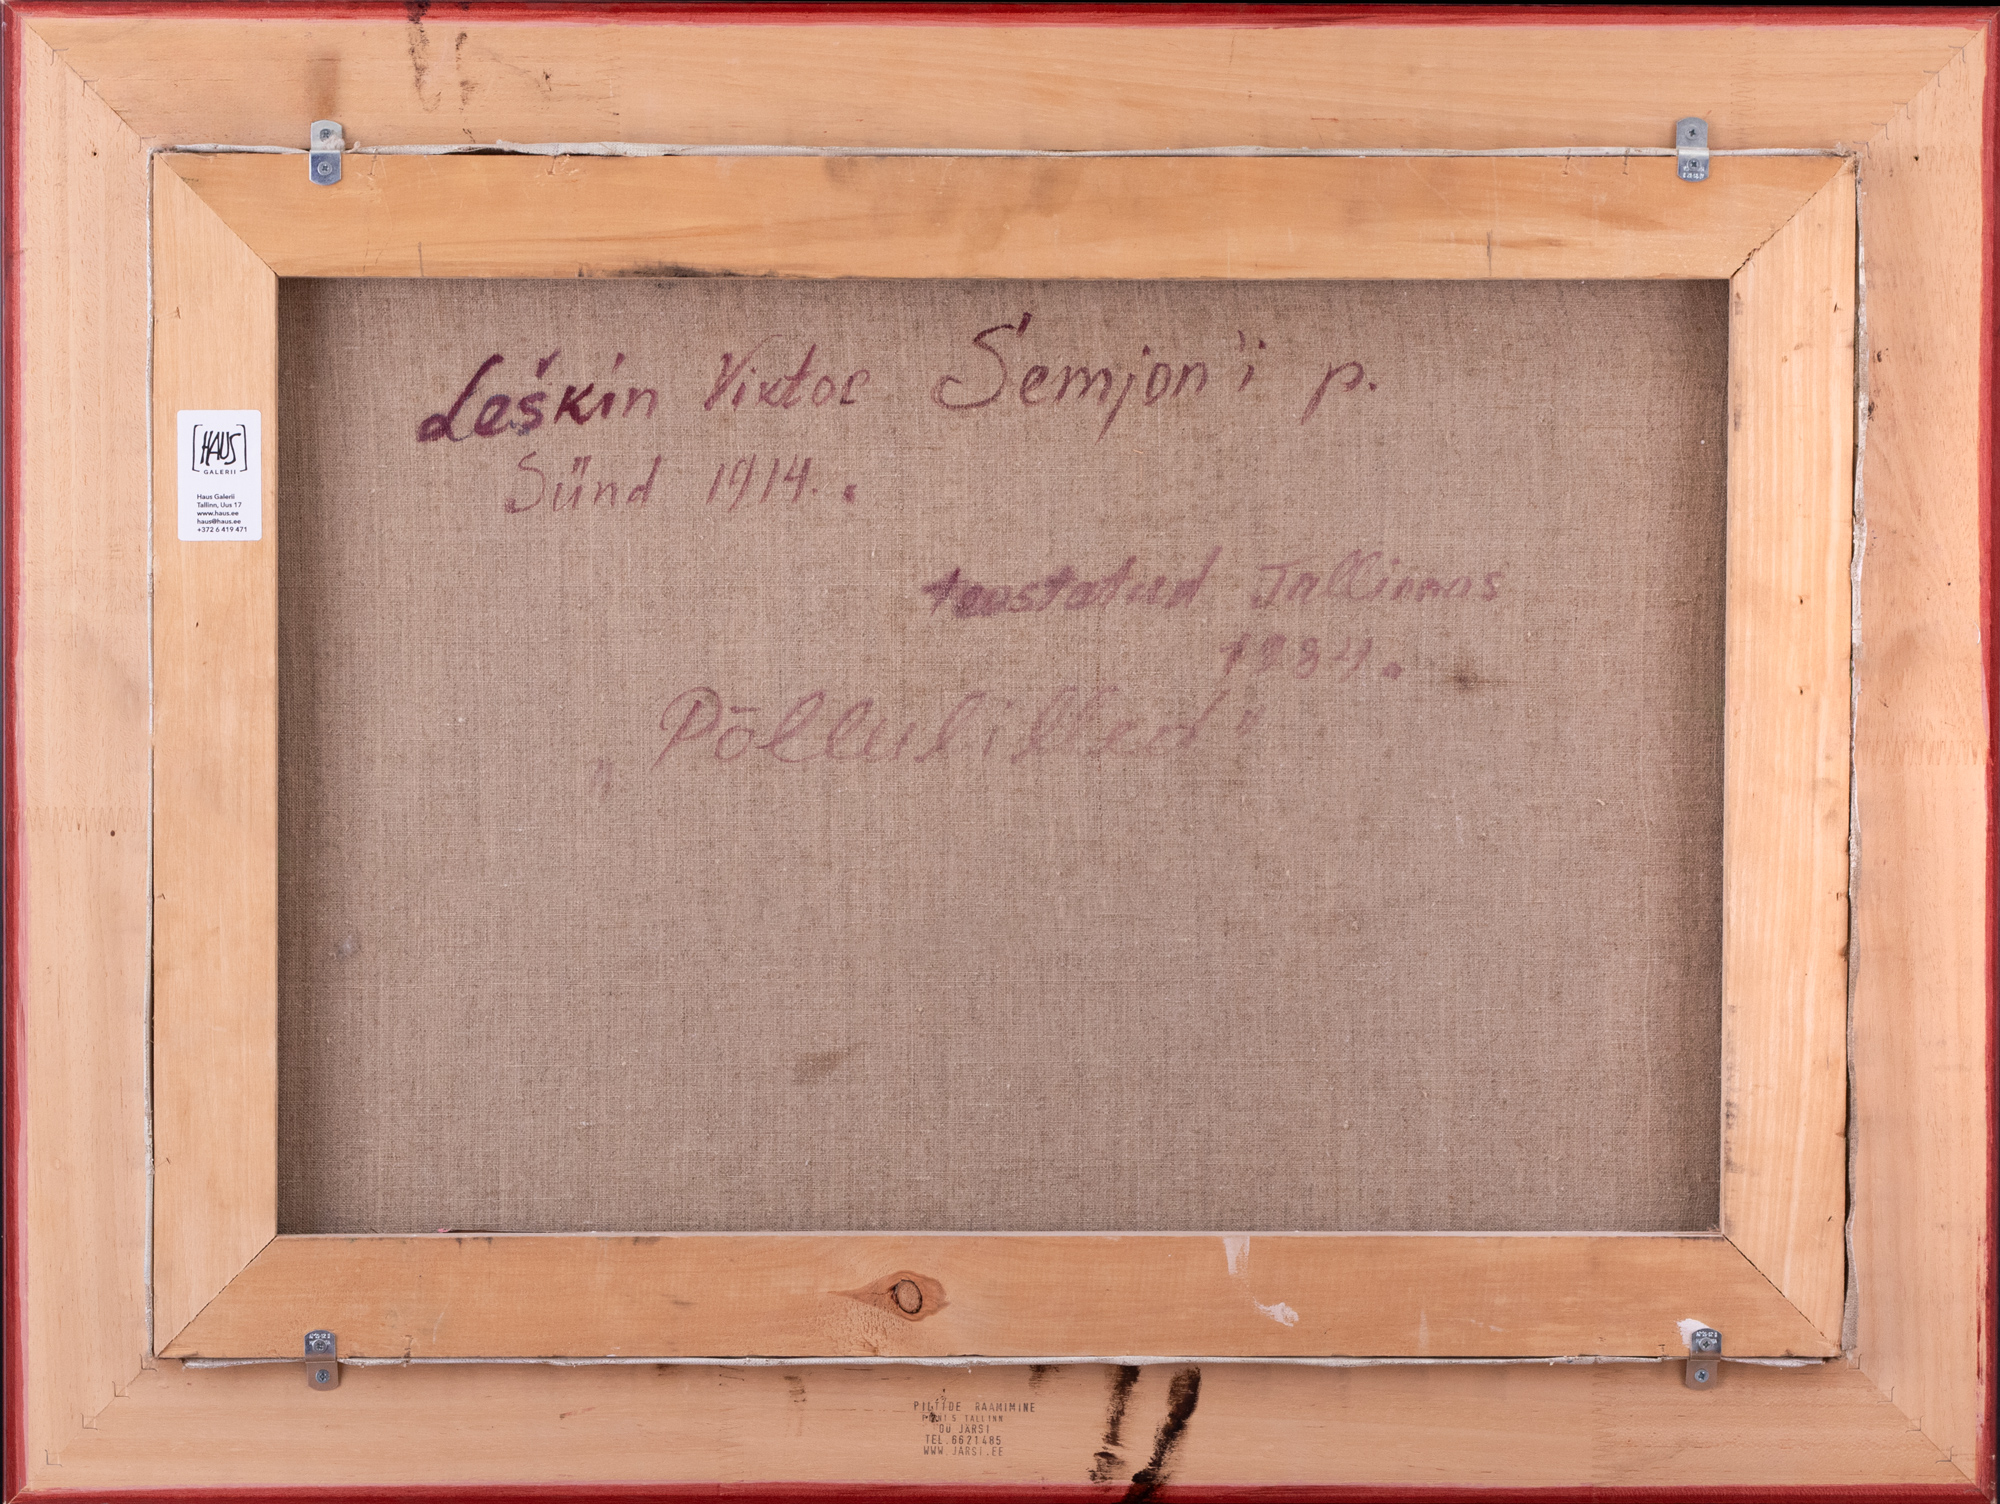 Leškin Viktor Semjon'i p.
Sünd 1914..
teostatud Tallinnas
1984.
„Põllulilled"
[HAUS]
GALERII
Haus Galerii
Tallinn, Uus 17
www.haus.ee
haus@haus.ee
+372 6 419 471
PILTIDE RAAMIMINE
5 TALLINN
OÜ JÄRSI
TEL.6621485
WWW.JARSI.EE